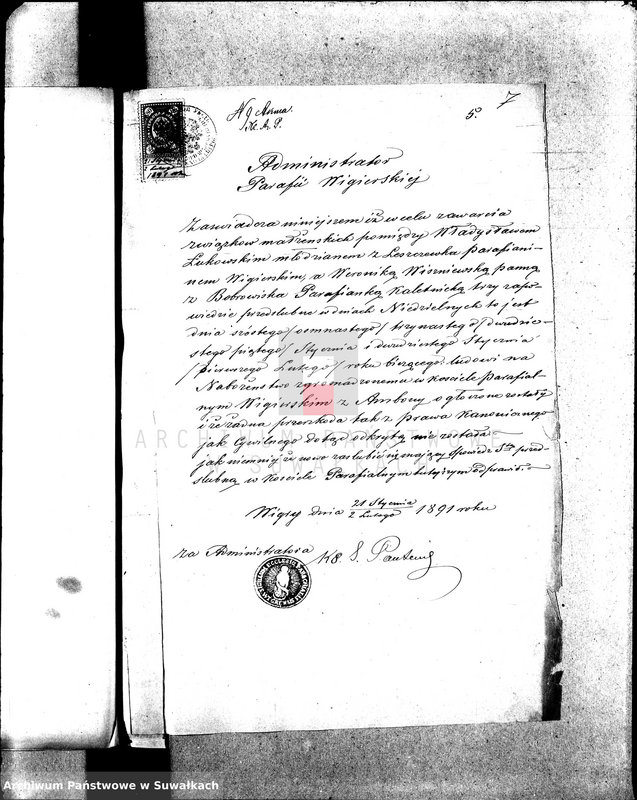 7
5º
Administrator
Parafii Wigierskiej
Zaświadcza niniejszem iż w celu zawarcia
związków małżeńskich pomiędzy Władysławem
Łukowskim młodzianem z Leszczewka parafiani-
nem Wigierskim, a Weroniką Wiszniewską panną
z Bobrowiska Parafianką Kaletnicką trzy zapo-
wiedzie przedślubne w dniach Niedzielnych to jest
dnia szóstego/ osmnastego/ trzynastego/ dwudzie-
stego piątego/ Stycznia i dwudziestego Stycznia
/pierwszego Lutego/ roku bieżącego ludowi na
Nabożeństwo zgromadzonemu w kościele parafial-
nym Wigierskim z Ambony ogłoszone zostały
i że żadna przeszkoda tak z prawa Kanonicznego
jak Cywilnego dotąd odkrytą nie została
jak niemniej że nowozaślubić się mający spowiedź Stą przed-
ślubną w kościele Parafialnym tutejszym odprawił. –
Wigry dnia 21 Stycznia / 2 Lutego 1891 roku
za Administratora Ks. S.
ARCHIWUM PAŃSTWOWE
SUWAŁKI
Archiwum Państwowe w Suwałkach